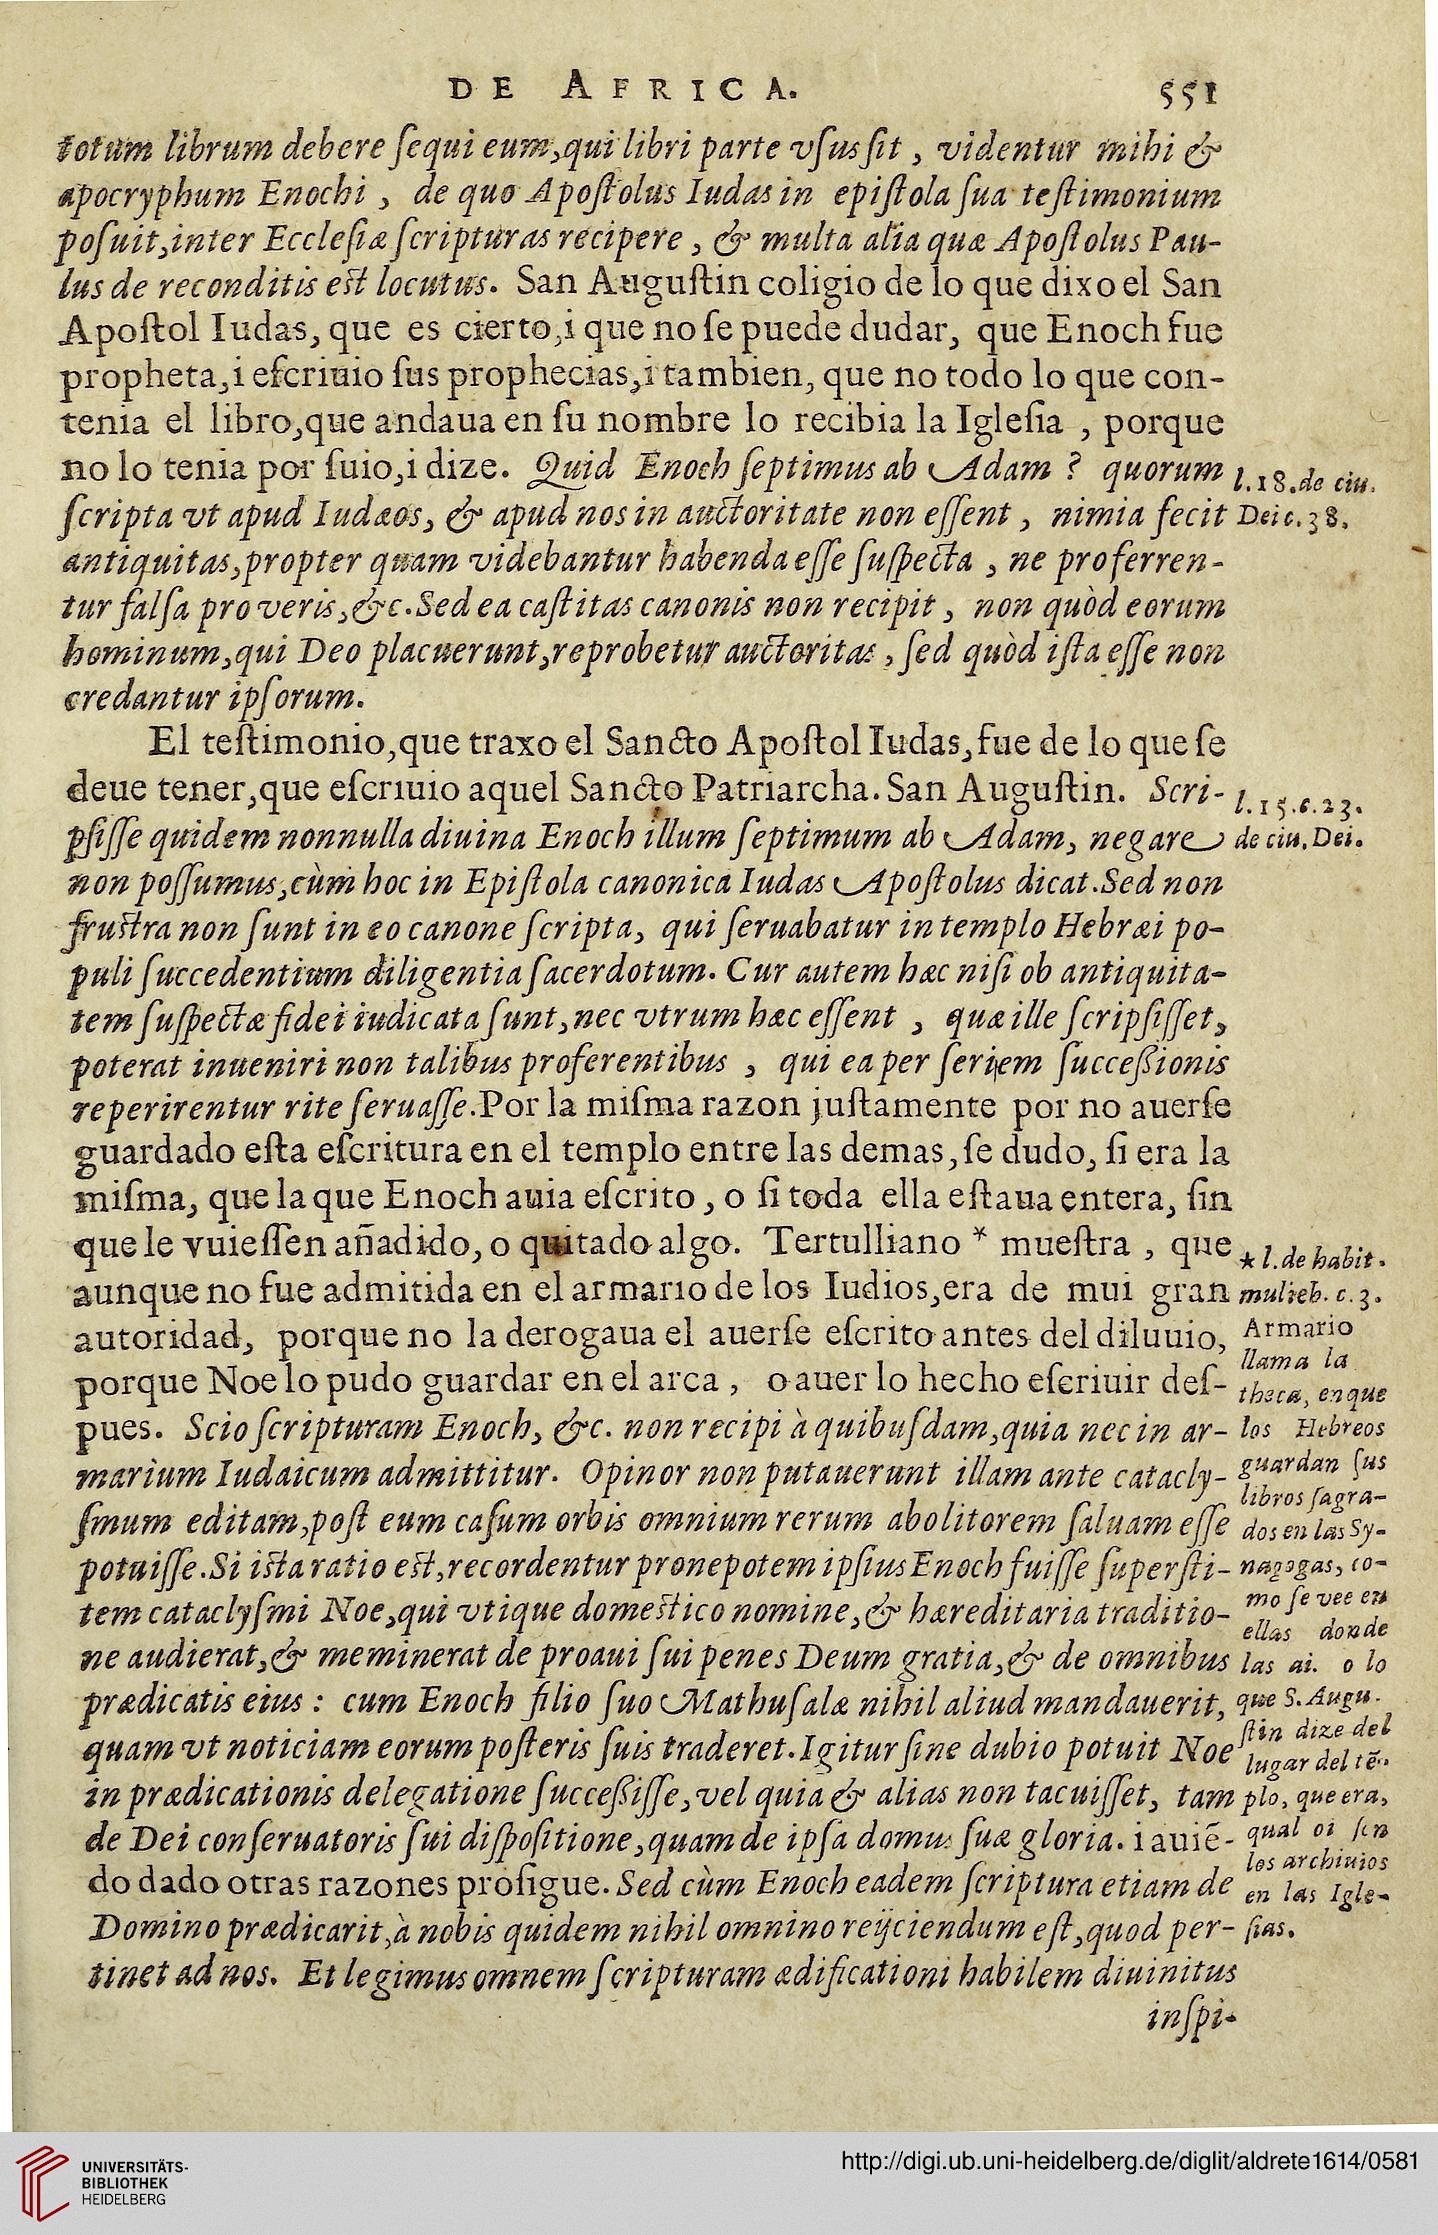 DE AFRICA.
551
totum librum debere ſequi eum,qui libri parte vſus ſit , videntur mihi &
apocryphum Enochi , de quo Apoſtolus Iudas in epiſtola ſua teſtimonium
poſuit,inter Eccleſiæ ſcripturas recipere , & multa alia quæ Apoſtolus Pau-
lus de reconditis eſt locutus. San Auguſtin coligio de lo que dixo el San
Apoſtol Iudas, que es cierto,i que no ſe puede dudar, que Enoch fue
propheta,i eſcriuio ſus prophecias,i tambien, que no todo lo que con-
tenia el libro,que andaua en ſu nombre lo recibia la Igleſia , porque
no lo tenia por ſuio,i dize. Quid Enoch ſeptimus ab Adam ? quorum
ſcripta vt apud Iudæos, & apud nos in auctoritate non eſſent , nimia fecit
antiquitas,propter quam videbantur habenda eſſe ſuſpecta , ne proferren-
tur falſa pro veris,&c.Sed ea caſtitas canonis non recipit , non quòd eorum
hominum,qui Deo placuerunt,reprobetur auctoritas , ſed quòd iſta eſſe non
credantur ipſorum.
l.18.de ciu.
Dei c.38.
El teſtimonio,que traxo el Sancto Apoſtol Iudas,fue de lo que ſe
deue tener,que eſcriuio aquel Sancto Patriarcha. San Auguſtin. Scri-
pſiſſe quidem nonnulla diuina Enoch illum ſeptimum ab Adam, negare
non poſſumus,cùm hoc in Epiſtola canonica Iudas Apoſtolus dicat.Sed non
fruſtra non ſunt in eo canone ſcripta, qui ſeruabatur in templo Hebræi po-
puli ſuccedentium diligentia ſacerdotum. Cur autem hæc niſi ob antiquita-
tem ſuſpectæ fidei iudicata ſunt,nec vtrum hæc eſſent , quæ ille ſcripſiſſet,
poterat inueniri non talibus proferentibus , qui ea per ſeriem ſucceßionis
reperirentur rite ſeruaſſe.Por la miſma razon juſtamente por no auerſe
guardado eſta eſcritura en el templo entre las demas,ſe dudo, ſi era la
miſma, que la que Enoch auia eſcrito , o ſi toda ella eſtaua entera, ſin
que le vuieſſen añadido, o quitado algo. Tertulliano * mueſtra , que
aunque no fue admitida en el armario de los Iudios,era de mui gran
autoridad, porque no la derogaua el auerſe eſcrito antes del diluuio,
porque Noe lo pudo guardar en el arca , o auer lo hecho eſcriuir deſ-
pues. Scio ſcripturam Enoch, &c. non recipi à quibuſdam,quia nec in ar-
marium Iudaicum admittitur. Opinor non putauerunt illam ante catacly-
ſmum editam,poſt eum caſum orbis omnium rerum abolitorem ſaluam eſſe
potuiſſe.Si iſta ratio eſt,recordentur pronepotem ipſius Enoch fuiſſe ſuperſti-
tem cataclyſmi Noe,qui vtique domeſtico nomine,& hæreditaria traditio-
ne audierat,& meminerat de proaui ſui penes Deum gratia,& de omnibus
prædicatis eius : cum Enoch filio ſuo Mathuſalæ nihil aliud mandauerit,
quam vt noticiam eorum poſteris ſuis traderet.Igitur ſine dubio potuit Noe
in prædicationis delegatione ſucceßiſſe,vel quia & alias non tacuiſſet, tam
de Dei conſeruatoris ſui diſpoſitione,quam de ipſa domus ſuæ gloria. i auiē-
do dado otras razones proſigue. Sed cùm Enoch eadem ſcriptura etiam de
Domino prædicarit,à nobis quidem nihil omnino reijciendum eſt,quod per-
tinet ad nos. Et legimus omnem ſcripturam ædificationi habilem diuinitus
inſpi-
l.15.c.23.
de ciu.Dei.
* l.de habit.
mulieb. c.3.
Armario
llama la
theca, en que
los Hebreos
guardan ſus
libros ſagra-
dos en las Sy-
nagogas, co-
mo ſe vee en
ellas donde
las ai. o lo
que S.Augu.
ſtin dize del
lugar del tē-
plo, que era,
qual oi ſon
los archiuios
en las Igle-
ſias.
UNIVERSITÄTS-
BIBLIOTHEK
HEIDELBERG
http://digi.ub.uni-heidelberg.de/diglit/aldrete1614/0581